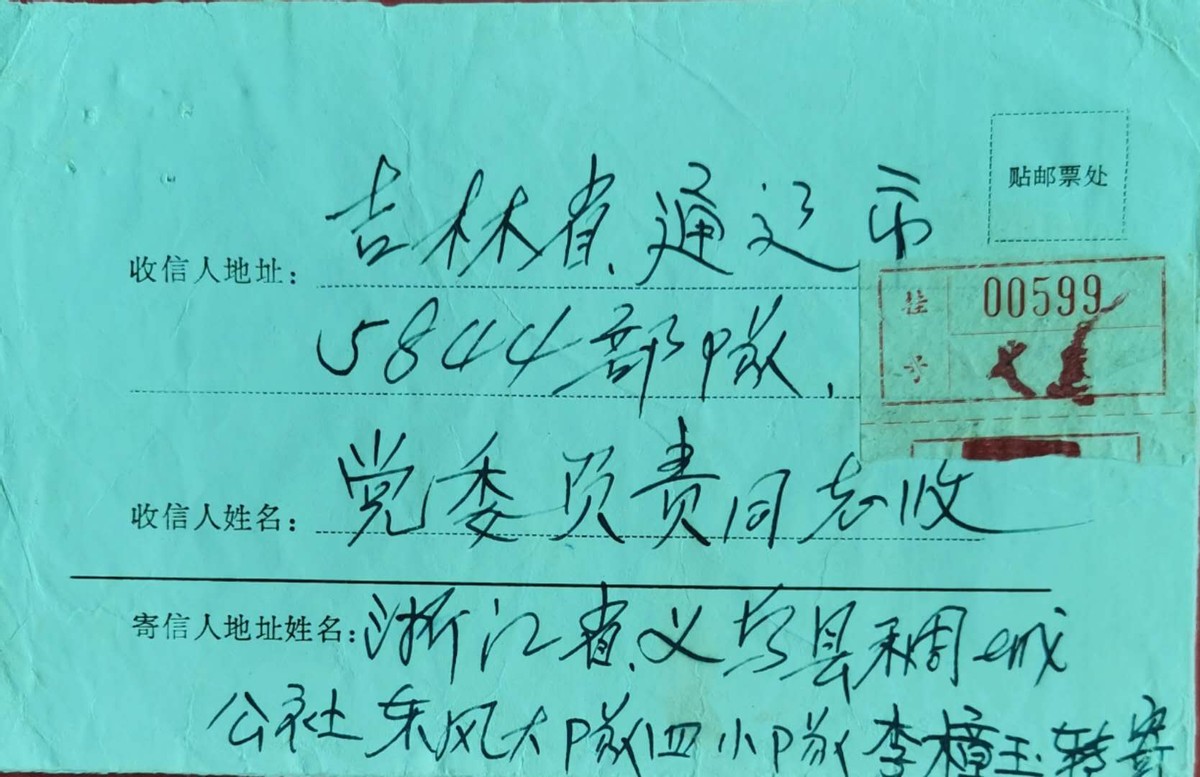 贴邮票处
收信人地址：吉林省、通辽市
挂号 00599
5844部隊，
收信人姓名：党委负责同志收
寄信人地址姓名：浙江省、义乌县稠城
公社东风大隊四小隊李樟玉转寄